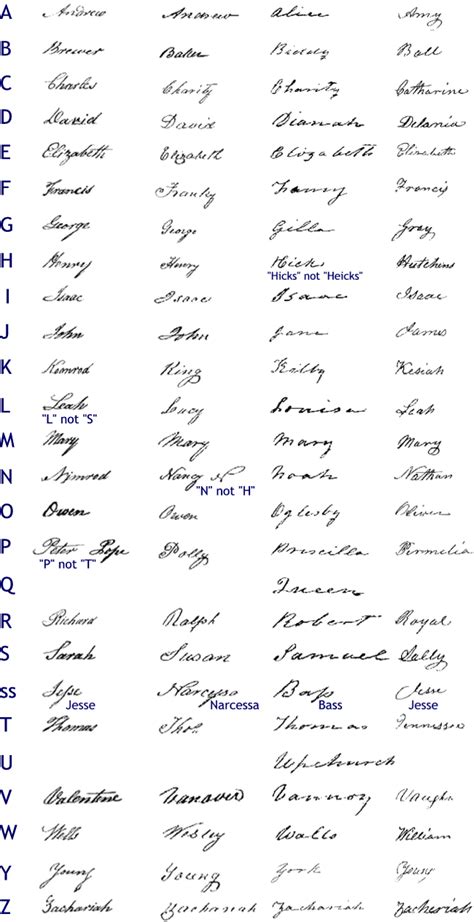 A Andrew Andrew Alice Amy
B Brewer Baker Biddy Ball
C Charles Charity Charity Catharine
D David David Dianah Delania
E Elizabeth Elizabeth Elizabeth Elizabeth
F Francis Franky Fanny Francis
G George George Gilla Gray
H Henny Henry Hicks Hutchins
"Hicks" not "Heicks"
I Isaac Isaac Isaac Isaac
J John John Jane James
K Kimrod King Kilby Kesiah
L Leah Lucy Louisa Leah
"L" not "S"
M Mary Mary Mary Mary
N Nimrod Nancy N Noah Nathan
"N" not "H"
O Owen Owen Oglesby Oliver
P Peter Pope Polly Priscilla Permelia
"P" not "T"
Q Queen
R Richard Ralph Robert Royal
S Sarah Susan Samuel Sally
ss Jesse Narcessa Bass Jesse
Jesse Narcessa Bass Jesse
T Thomas Thos. Thomas Tennessee
U Upchurch
V Valentine Vanover Vannoy Vaughn
W Wells Wesley Walls William
Y Young Young York Young
Z Zachariah Zachariah Zachariah Zachariah